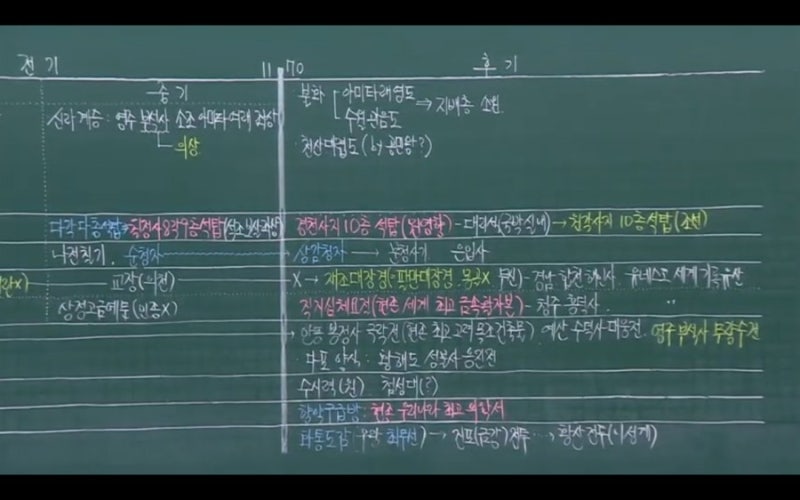 전기 11 70 후기
중기
불화 아미타래영도 → 지배층 소원
수월관음도
신라 계승 : 영주 부석사 소조 아미타 여래 좌상
의상
천산대렵도 (by 공민왕?)
다각 다층석탑 월정사 8각 9층 석탑
경천사지 10층 석탑 (원 영향) - 대리석 (국박 실내) → 원각사지 10층 석탑 (조선)
나전칠기, 순청자 상감청자 → 분청사기 은입사
교장 (의천) X → 재조대장경 (=팔만대장경, 목판X 부인) - 경남 합천 해인사 유네스코 세계 기록유산
직지심체요절 (현존 세계 최고 금속활자본) - 청주 흥덕사 〃
상정고금예문 (인종X)
→ 안동 봉정사 극락전 (현존 최고 고려 목조건축물) 예산 수덕사 대웅전, 영주 부석사 무량수전
다포 양식 : 황해도 성불사 응진전
수시력 (원) 첨성대 (?)
향약구급방 : 현존 우리나라 최고 의학서
화통도감 최무선) → 진포 (금강) 전투 → 황산 전투 (이성계)